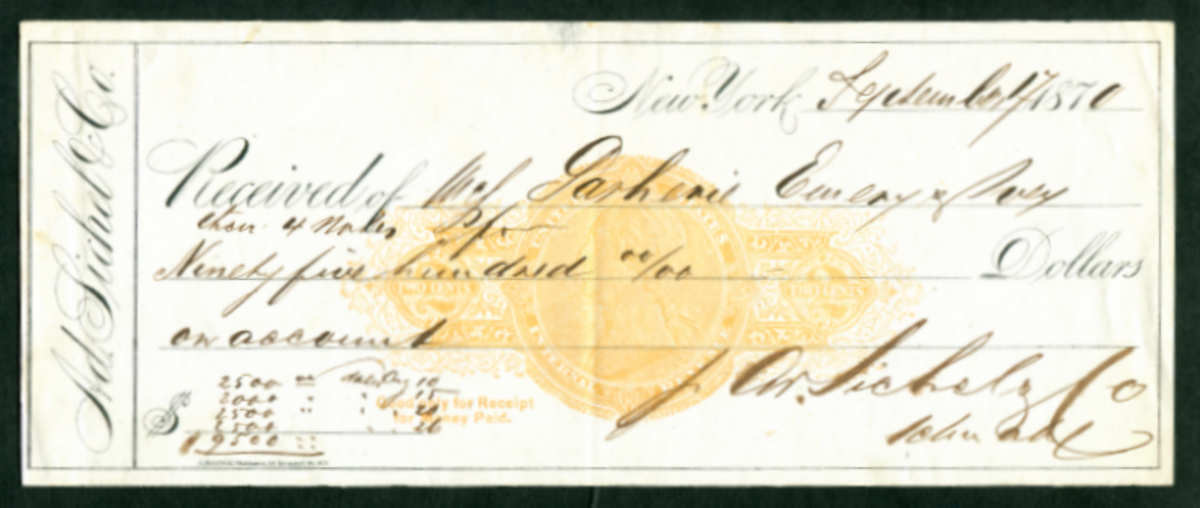 Ad. Sichel & Co.
New York, September 17 1870
Received of Mess Emery &
their 4 Notes for
Ninety five hundred 00/00 Dollars
on account
2500 " dated Aug 10
2000 " " 15
2500 " " 20
2500 " " 26
$ 9500
Good only for Receipt
for Money Paid.
p Ad. Sichel & Co
John